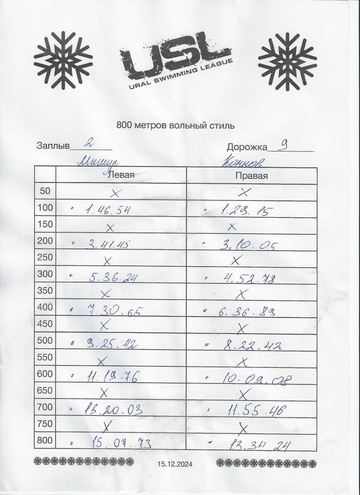 USL
URAL SWIMMING LEAGUE
800 метров вольный стиль
Заплыв 2 Дорожка 9
Левая Правая
50 X X
100 1.46.54 1.29.15
150 X X
200 3.41.45 3.10.05
250 X X
300 5.36.24 4.52.78
350 X X
400 7.30.65 6.36.89
450 X X
500 9.25.42 8.22.42
550 X X
600 11.19.76 10.09.08
650 X X
700 13.20.03 11.55.46
750 X X
800 15.07.73 13.34.24
15.12.2024